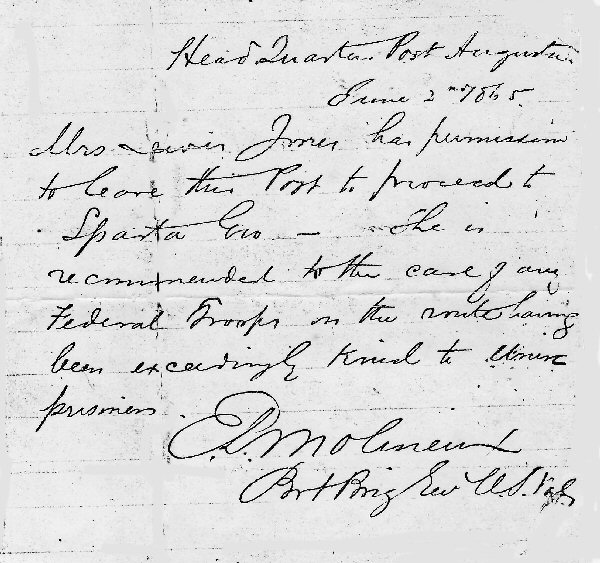 Head Quarters Post Augusta
June 2nd 1865.
Mrs Lewis Jones has permission
to leave this Post to proceed to
Sparta Geo — She is
recommended to the care of any
Federal Troops on the route having
been exceedingly Kind to Union
prisoners.
E.L. Molineux
Bvt Brig Gen U.S. Vols